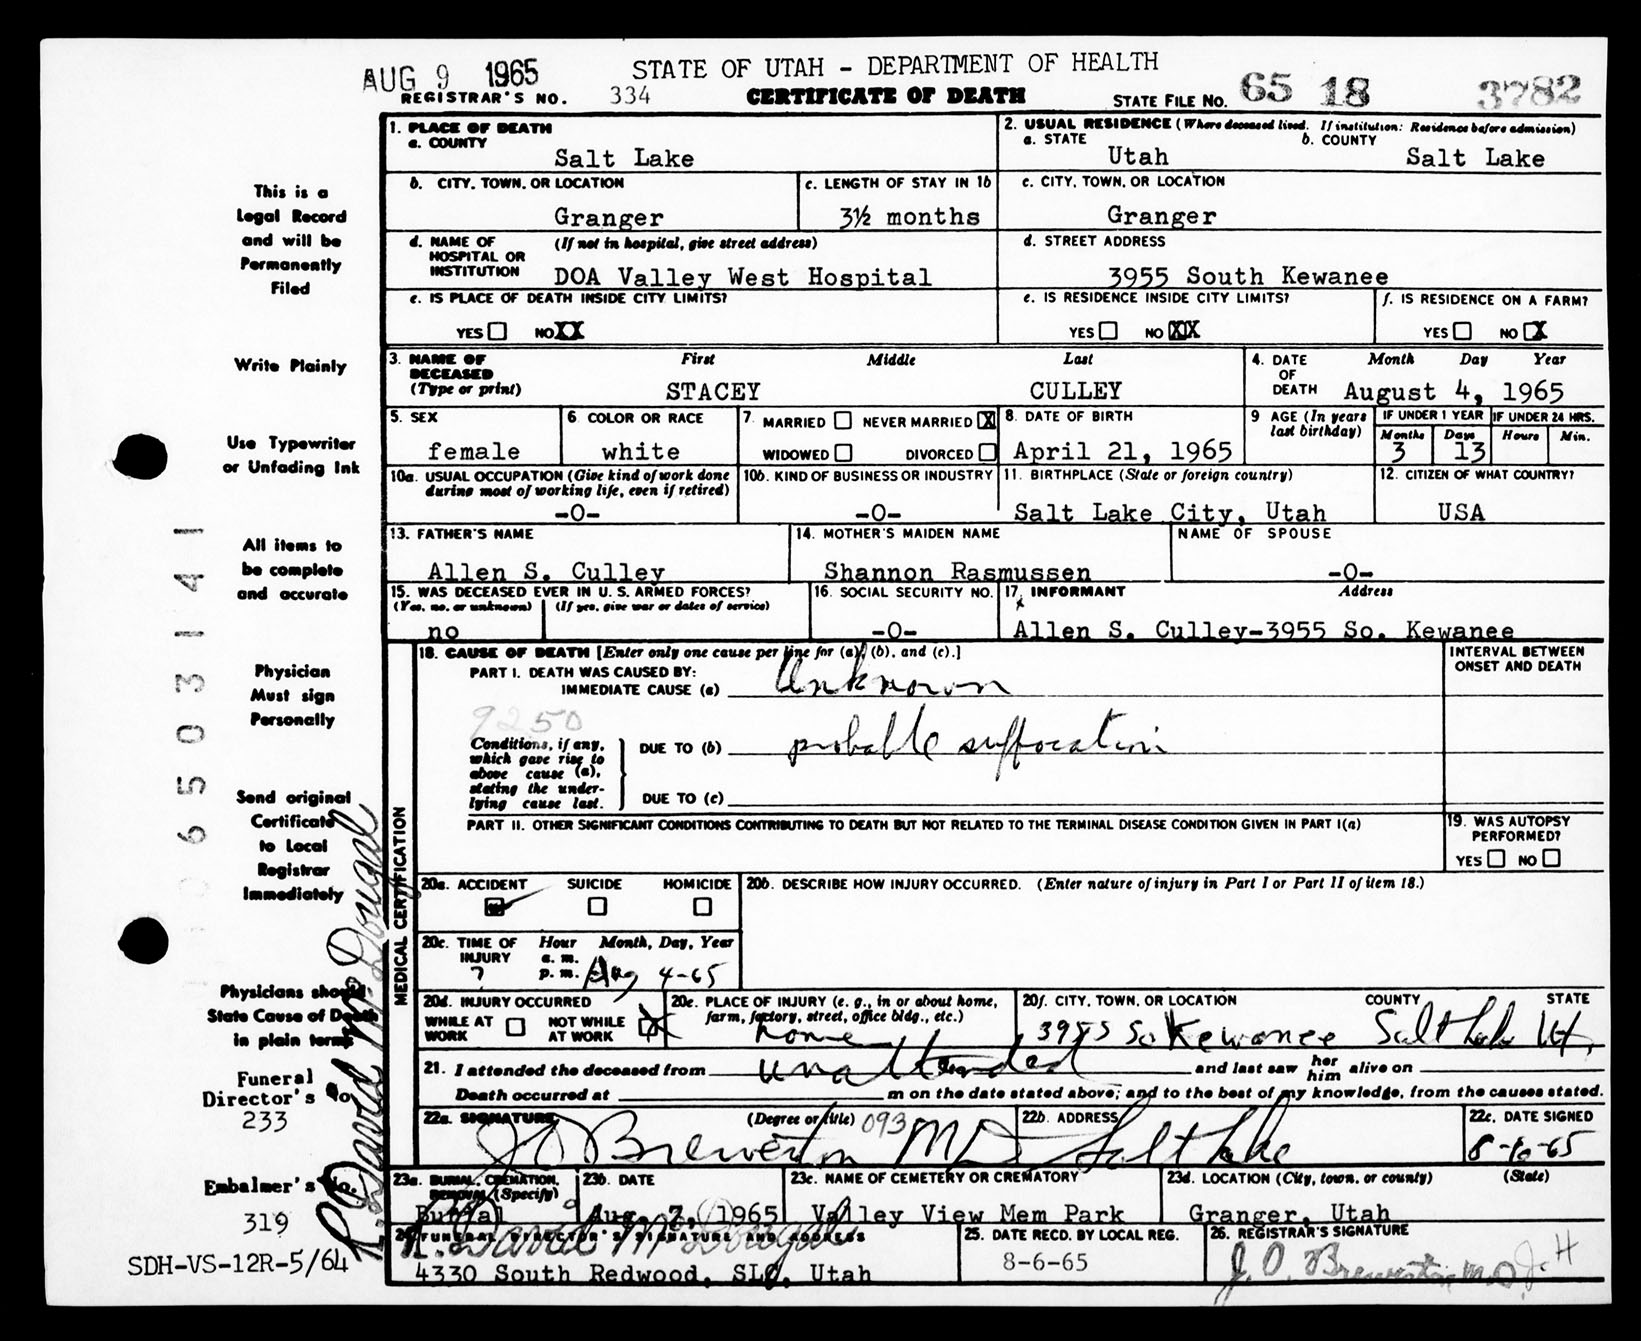 AUG 9 1965
STATE OF UTAH - DEPARTMENT OF HEALTH
REGISTRAR'S NO. 334
CERTIFICATE OF DEATH
STATE FILE NO. 65 18 3782
This is a
Legal Record
and will be
Permanently
Filed
Write Plainly
Use Typewriter
or Unfading Ink
All items to
be complete
and accurate
Physician
Must sign
Personally
Send original
Certificate
to Local
Registrar
Immediately
Physicians should
State Cause of Death
in plain terms
Funeral
Director's No.
233
Embalmer's No.
319
SDH-VS-12R-5/64
6503141
R. David McDougal
1. PLACE OF DEATH
a. COUNTY
Salt Lake
2. USUAL RESIDENCE (Where deceased lived. If institution: Residence before admission)
a. STATE b. COUNTY
Utah Salt Lake
b. CITY, TOWN, OR LOCATION
Granger
c. LENGTH OF STAY IN 1b
3½ months
c. CITY, TOWN, OR LOCATION
Granger
d. NAME OF (If not in hospital, give street address)
HOSPITAL OR
INSTITUTION DOA Valley West Hospital
d. STREET ADDRESS
3955 South Kewanee
e. IS PLACE OF DEATH INSIDE CITY LIMITS?
YES NO XX
e. IS RESIDENCE INSIDE CITY LIMITS?
YES NO XX
f. IS RESIDENCE ON A FARM?
YES NO X
3. NAME OF First Middle Last
DECEASED
(Type or print) STACEY CULLEY
4. DATE Month Day Year
OF
DEATH August 4, 1965
5. SEX
female
6. COLOR OR RACE
white
7. MARRIED NEVER MARRIED X
WIDOWED DIVORCED
8. DATE OF BIRTH
April 21, 1965
9 AGE (In years
last birthday)
IF UNDER 1 YEAR
Months Days
3 13
IF UNDER 24 HRS.
Hours Min.
10a. USUAL OCCUPATION (Give kind of work done
during most of working life, even if retired)
-0-
10b. KIND OF BUSINESS OR INDUSTRY
-0-
11. BIRTHPLACE (State or foreign country)
Salt Lake City, Utah
12. CITIZEN OF WHAT COUNTRY?
USA
13. FATHER'S NAME
Allen S. Culley
14. MOTHER'S MAIDEN NAME
Shannon Rasmussen
NAME OF SPOUSE
-0-
15. WAS DECEASED EVER IN U. S. ARMED FORCES?
(Yes, no, or unknown) (If yes, give war or dates of service)
no
16. SOCIAL SECURITY NO.
-0-
17. INFORMANT Address
Allen S. Culley-3955 So. Kewanee
MEDICAL CERTIFICATION
18. CAUSE OF DEATH [Enter only one cause per line for (a), (b), and (c).]
INTERVAL BETWEEN
ONSET AND DEATH
PART I. DEATH WAS CAUSED BY:
IMMEDIATE CAUSE (a) Unknown
9250
Conditions, if any,
which gave rise to
above cause (a),
stating the under-
lying cause last.
DUE TO (b) probable suffocation
DUE TO (c)
PART II. OTHER SIGNIFICANT CONDITIONS CONTRIBUTING TO DEATH BUT NOT RELATED TO THE TERMINAL DISEASE CONDITION GIVEN IN PART I(a)
19. WAS AUTOPSY
PERFORMED?
YES NO
20a. ACCIDENT SUICIDE HOMICIDE
20b. DESCRIBE HOW INJURY OCCURRED. (Enter nature of injury in Part I or Part II of item 18.)
20c. TIME OF Hour Month, Day, Year
INJURY a. m.
? p. m. Aug 4-65
20d. INJURY OCCURRED
WHILE AT NOT WHILE
WORK AT WORK X
20e. PLACE OF INJURY (e. g., in or about home,
farm, factory, street, office bldg., etc.)
home
20f. CITY, TOWN, OR LOCATION COUNTY STATE
3955 So Kewanee Salt Lake Ut.
21. I attended the deceased from unattended and last saw her him alive on
Death occurred at m on the date stated above; and to the best of my knowledge, from the causes stated.
22a. SIGNATURE (Degree or title) 093
J O Brewerton MD
22b. ADDRESS
Salt Lake
22c. DATE SIGNED
8-6-65
23a. BURIAL, CREMATION,
REMOVAL (Specify)
Burial
23b. DATE
Aug. 7, 1965
23c. NAME OF CEMETERY OR CREMATORY
Valley View Mem Park
23d. LOCATION (City, town, or county) (State)
Granger, Utah
24. FUNERAL DIRECTOR'S SIGNATURE AND ADDRESS
R. David McDougal
4330 South Redwood, SLC, Utah
25. DATE RECD. BY LOCAL REG.
8-6-65
26. REGISTRAR'S SIGNATURE
J. O. Brewerton M.D. J.H